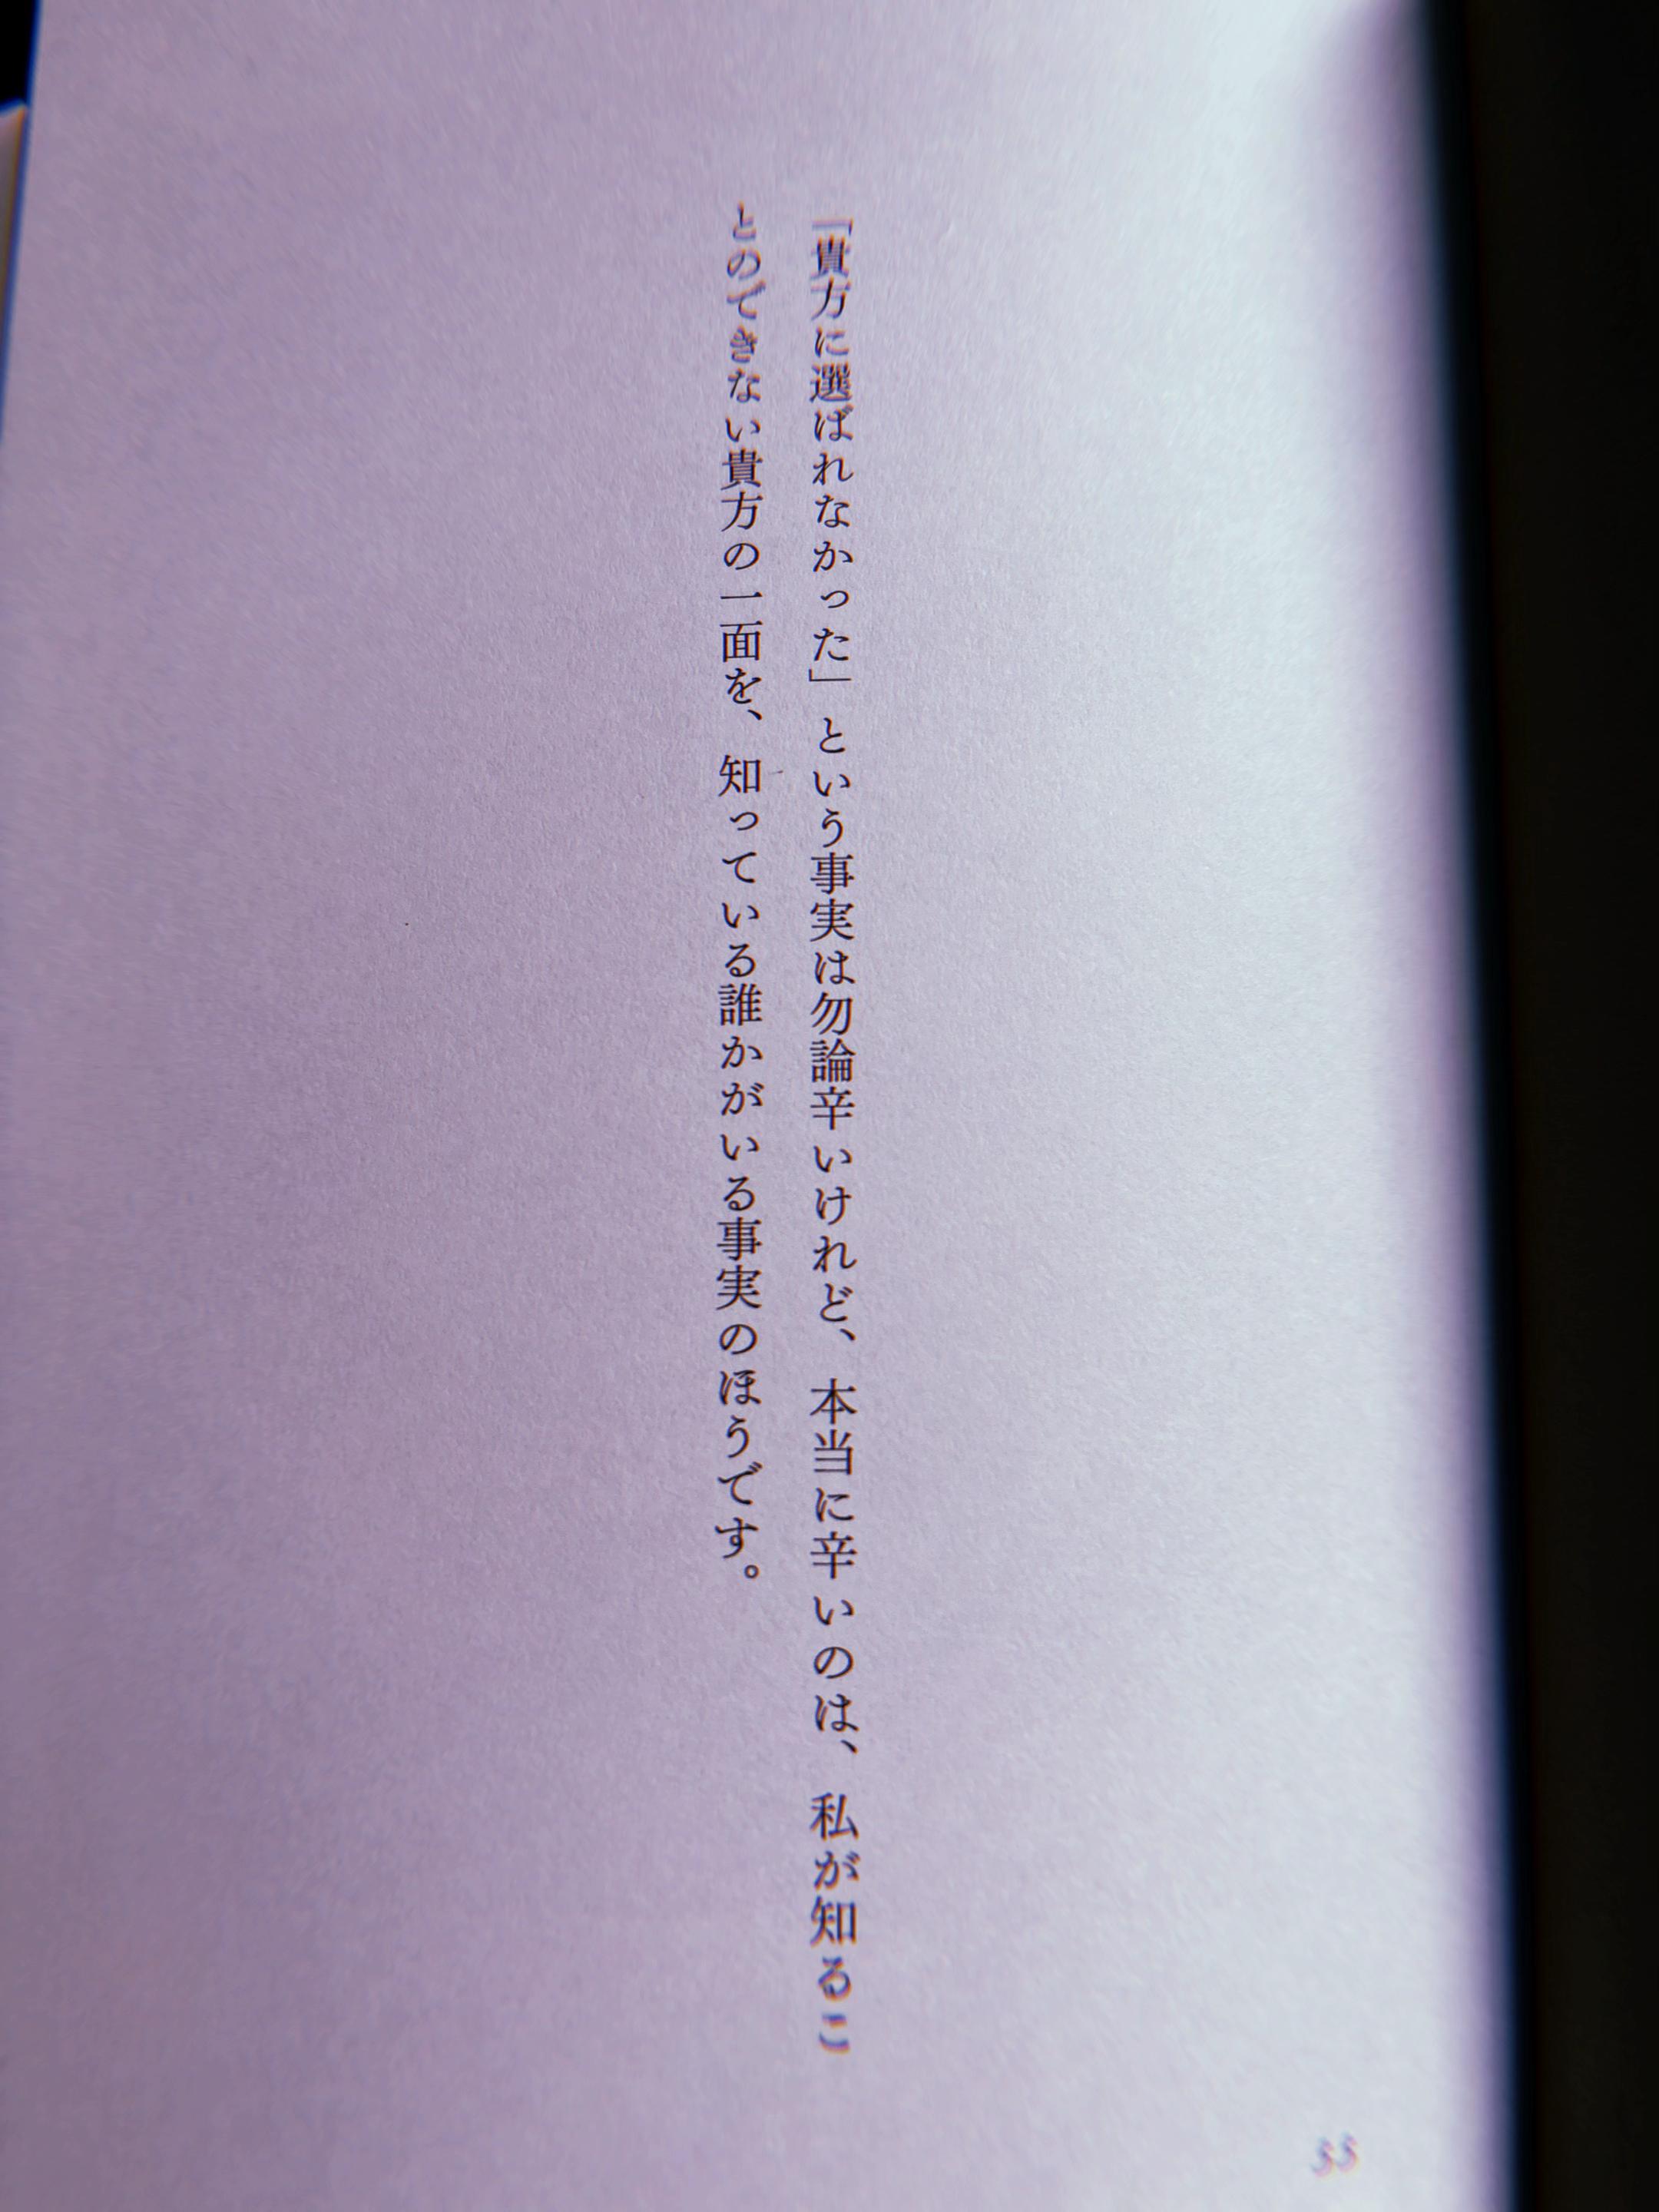 「貴方に選ばれなかった」という事実は勿論辛いけれど、本当に辛いのは、私が知るこ
とのできない貴方の一面を、知っている誰かがいる事実のほうです。
55